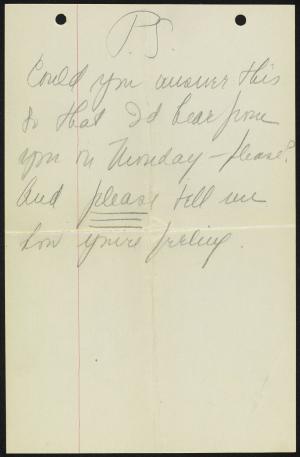 P.S.
Could you answer this
so that I'd hear from
you on Monday – please?
And please tell me
how you're feeling.